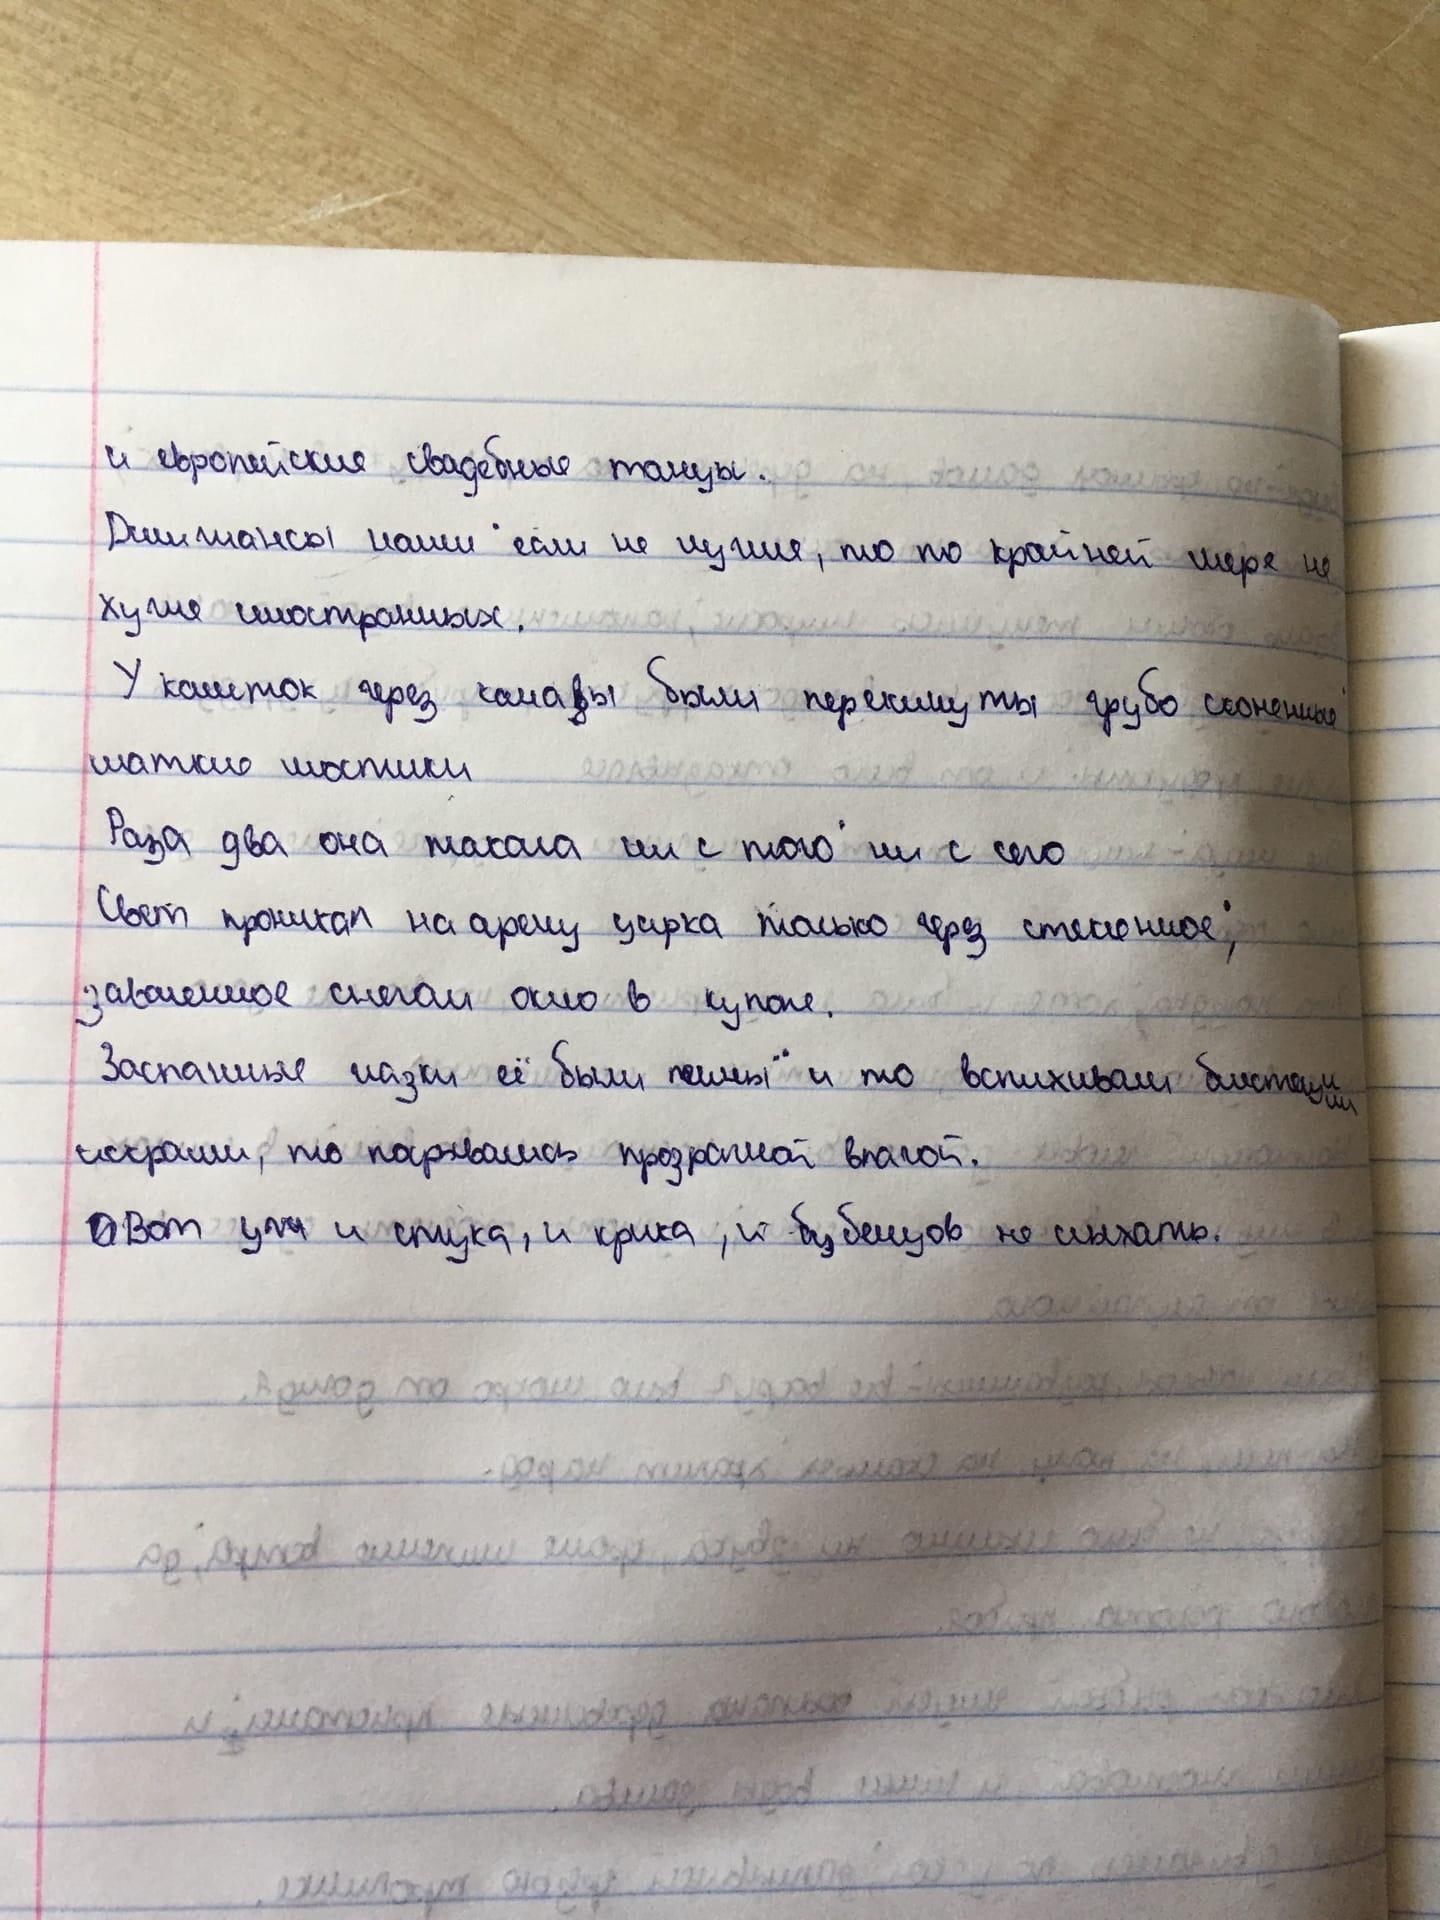 и европейские свадебные танцы.
Дилижансы наши если не лучше, то по крайней мере не
хуже иностранных.
У калиток через канавы были перекинуты грубо сколоченные
шаткие мостики
Раза два она плакала ни с того ни с сего
Свет проникал на арену цирка только через стеклянное,
заваленное снегом окно в куполе.
Заспанные глазки её были и то вспыхивали блестящими
искрами, то подёргивались прозрачной влагой.
Вот уж и стука, и крика, и бубенцов не слыхать.